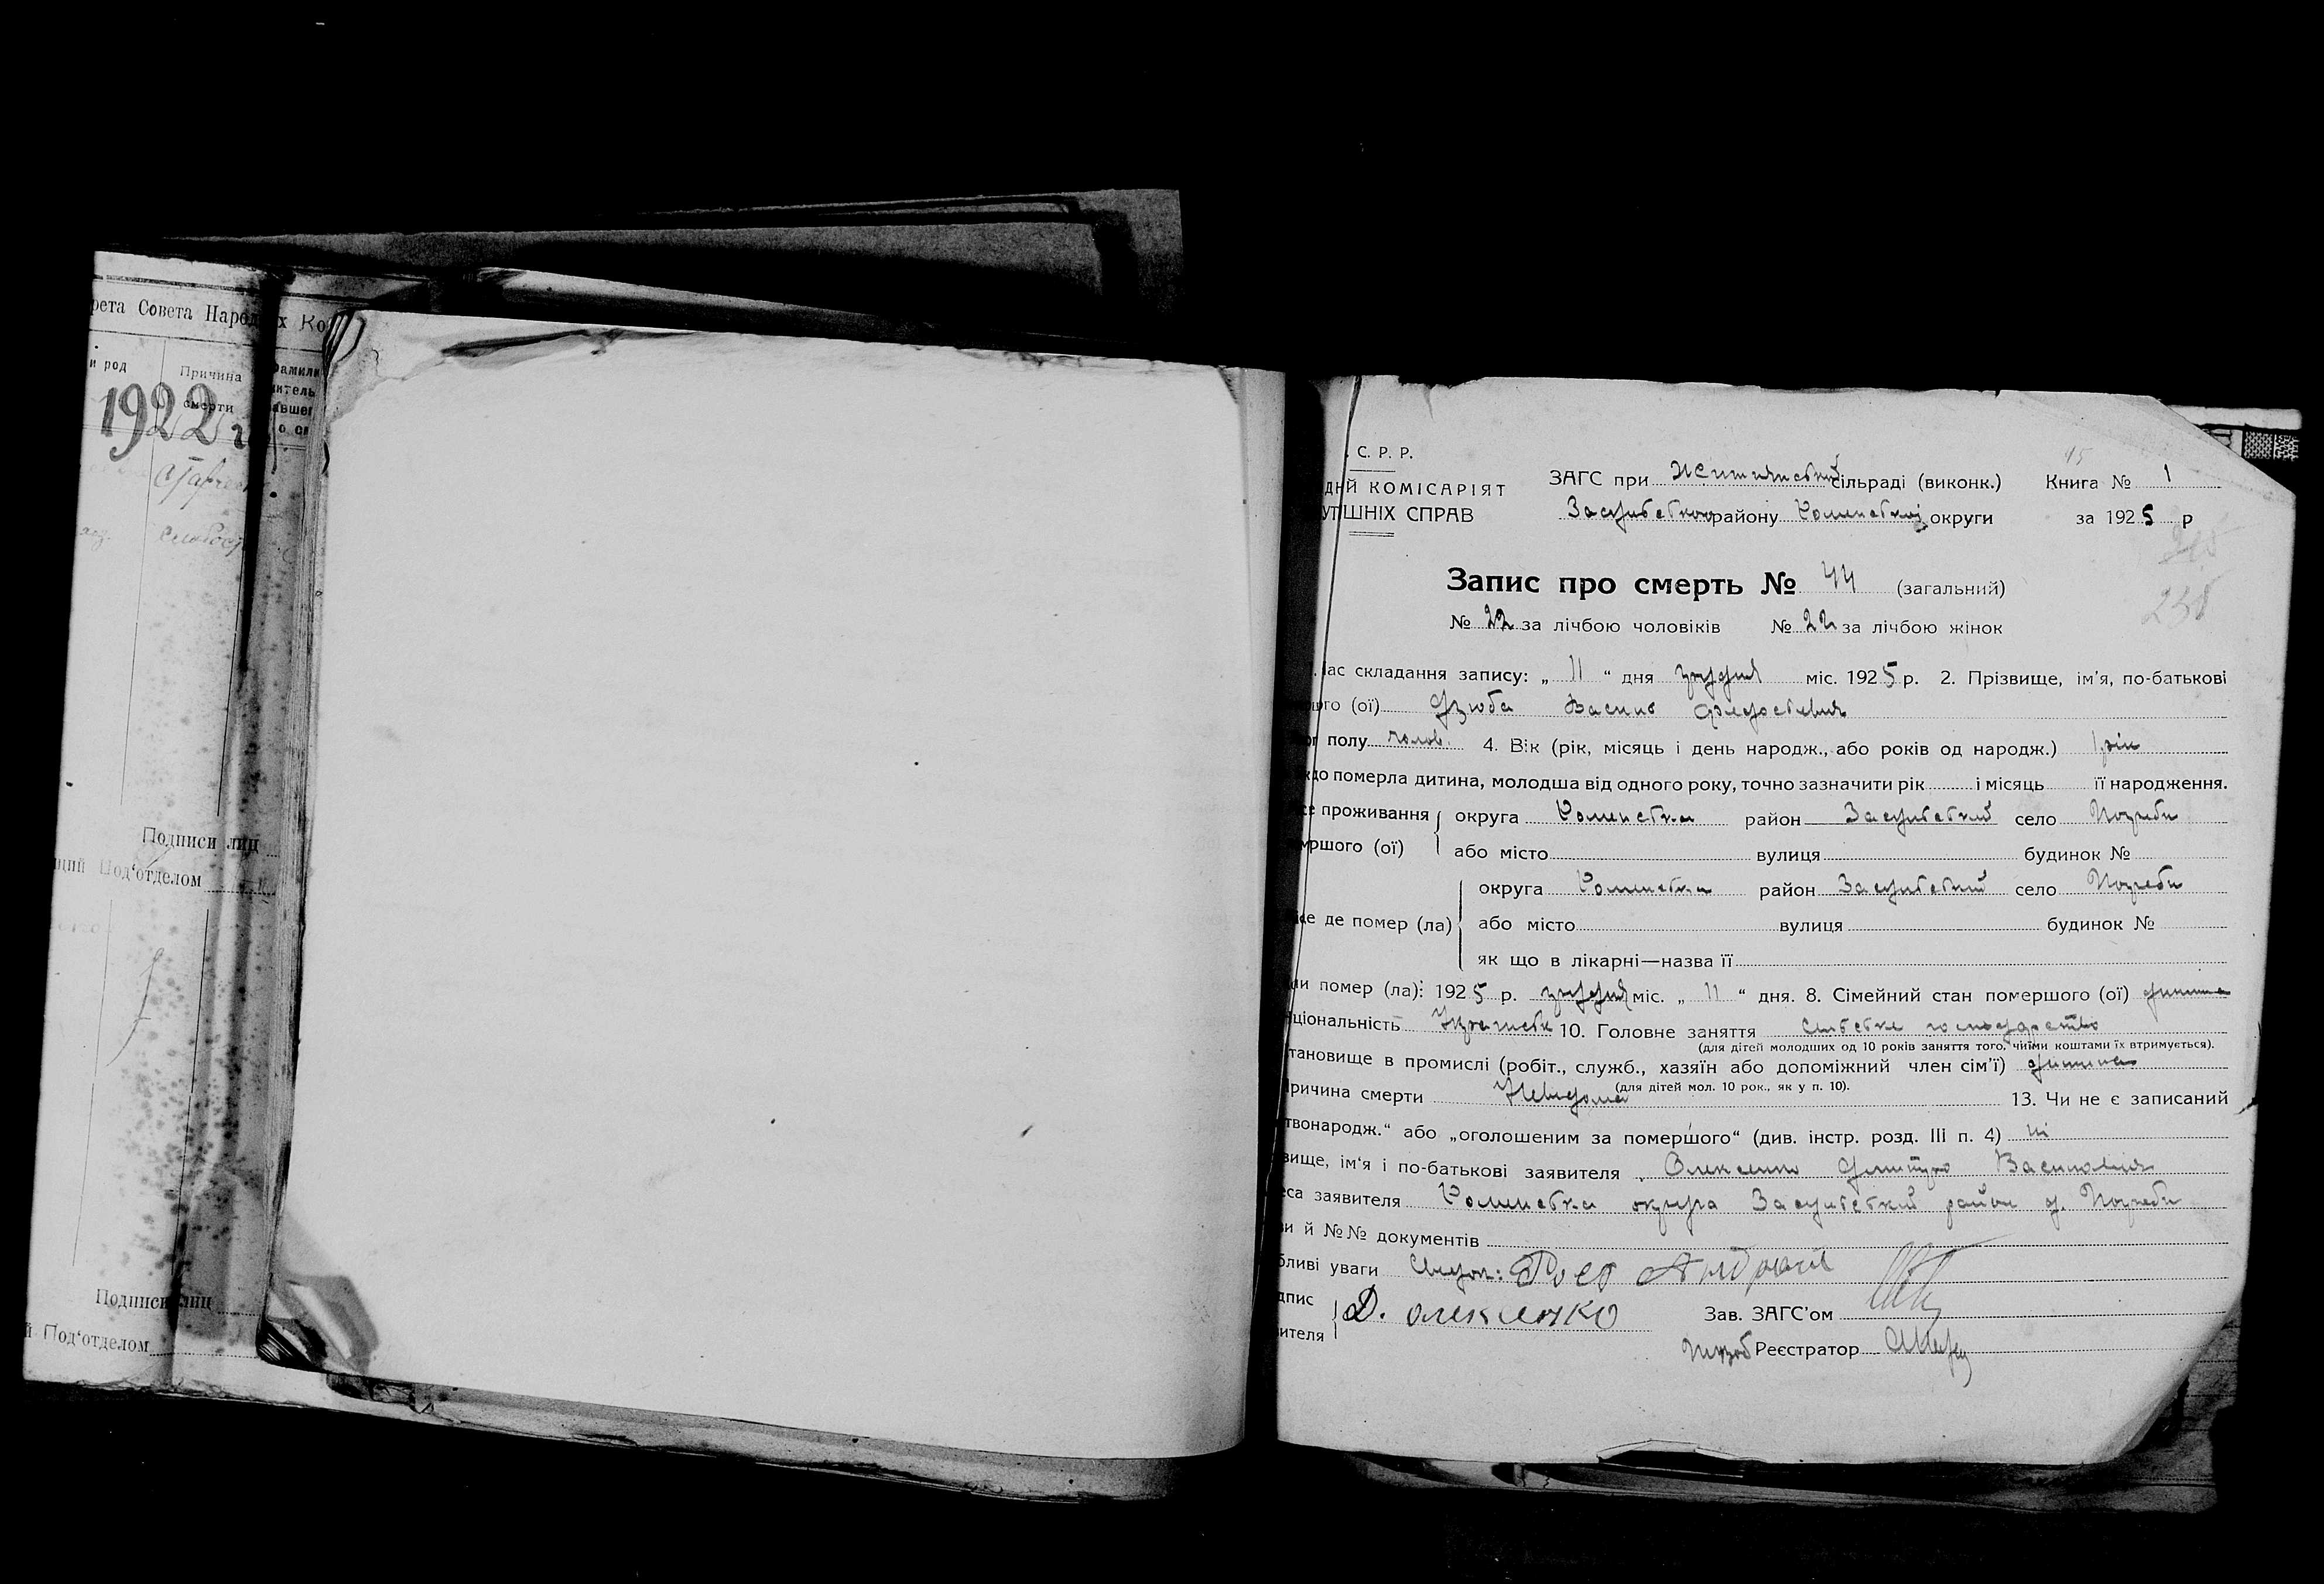 рета Совета Народ х Ко
и род
Причина
смерти
Фамили
итель
авшег
о см
1922 г
Подписи лиц
щий Под'отделом
Подписи лиц
й Под'отделом
. С. Р. Р.
ДНЙ КОМІСАРІЯТ
УТІШНІХ СПРАВ
ЗАГС при сільраді (виконк.) Книга № 1
Засульского району Роменської округи за 1925 р
Запис про смерть № 44 (загальний)
№ 22 за лічбою чоловіків № 22 за лічбою жінок
Час складання запису: „ 11 “ дня грудня міс. 1925 р. 2. Прізвище, ім'я, по-батькові
ого (ої) Дзюба Василь Федосієвич
полу чолов. 4. Вік (рік, місяць і день народж., або років од народж.) 1 рік
що померла дитина, молодша від одного року, точно зазначити рік і місяць її народження.
се проживання округа Роменська район Засульский село Погреби
мршого (ої) або місто вулиця будинок №
округа Роменська район Засульский село Погреби
ісе де помер (ла) або місто вулиця будинок №
як що в лікарні—назва її
ли помер (ла): 1925 р. грудня міс. „ 11 “ дня. 8. Сімейний стан помершого (ої) дитина
ціональність 10. Головне заняття Сильське господарство
(для дітей молодших од 10 років заняття того, чиїми коштами їх втримується).
тановище в промислі (робіт., служб., хазяїн або допоміжний член сім'ї) дитина
(для дітей мол. 10 рок., як у п. 10).
ричина смерти Невідома 13. Чи не є записаний
твонародж.“ або „оголошеним за помершого“ (див. інстр. розд. III п. 4) ні
вище, ім'я і по-батькові заявителя Олексенко Дмитро Василович
еса заявителя Роменська округа Засульский район д. Погреби
и й №№ документів
бливі уваги Свідок: Андрій
дпис
ителя
Д. олексенко
Зав. ЗАГС'ом
Реєстратор